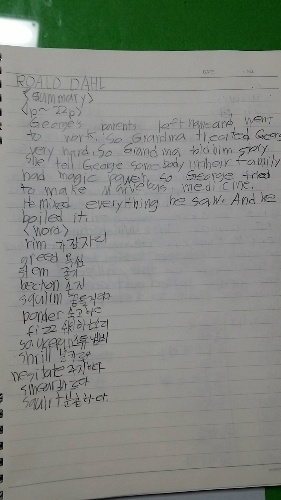 ROALD DAHL
<Summary>
<p~22p>
George's parents left home and went
to work, so Grandma treated George
very hard. so Grandma told him story
she tell George somebody in her family
had magic power, so George tried
to make marvelous medicine.
it mixed everything he saw. And he
boiled it.
<word>
rim 가장자리
greed 욕심
stem 줄기
beckon 손짓
squirm
ponder 숙고하다
fizz
saucer
shrill 날카로운
hesitate 주저하다
smear 바르다
squirt 분출하다